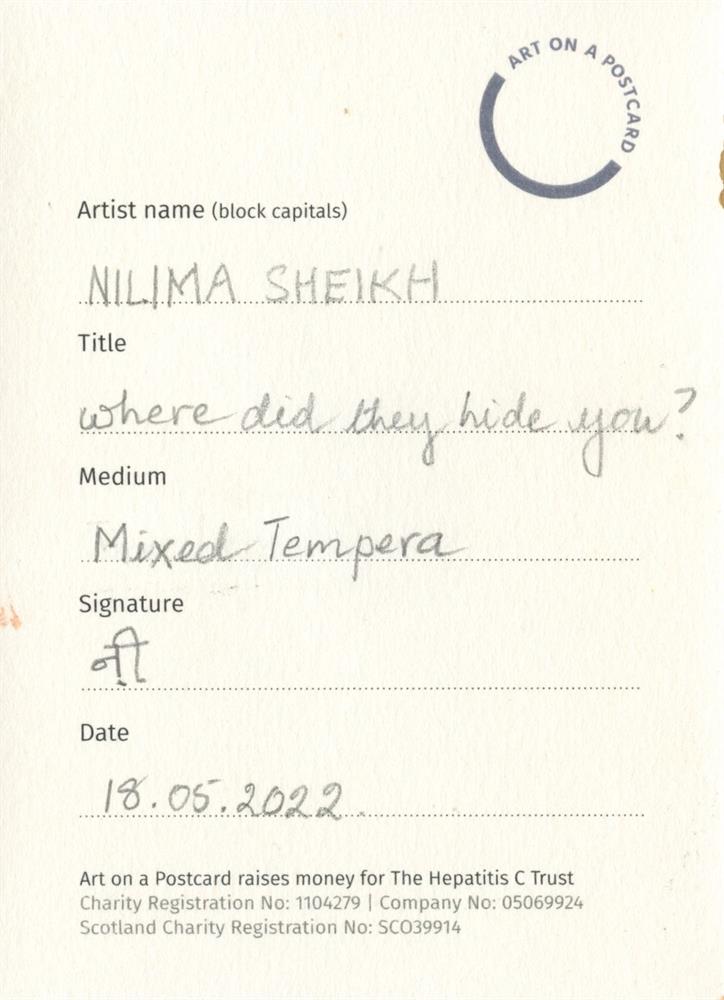 ART ON A POSTCARD
Artist name (block capitals)
NILIMA SHEIKH
Title
where did they hide you?
Medium
Mixed Tempera
Signature
नी
Date
18.05.2022.
Art on a Postcard raises money for The Hepatitis C Trust
Charity Registration No: 1104279 | Company No: 05069924
Scotland Charity Registration No: SCO39914